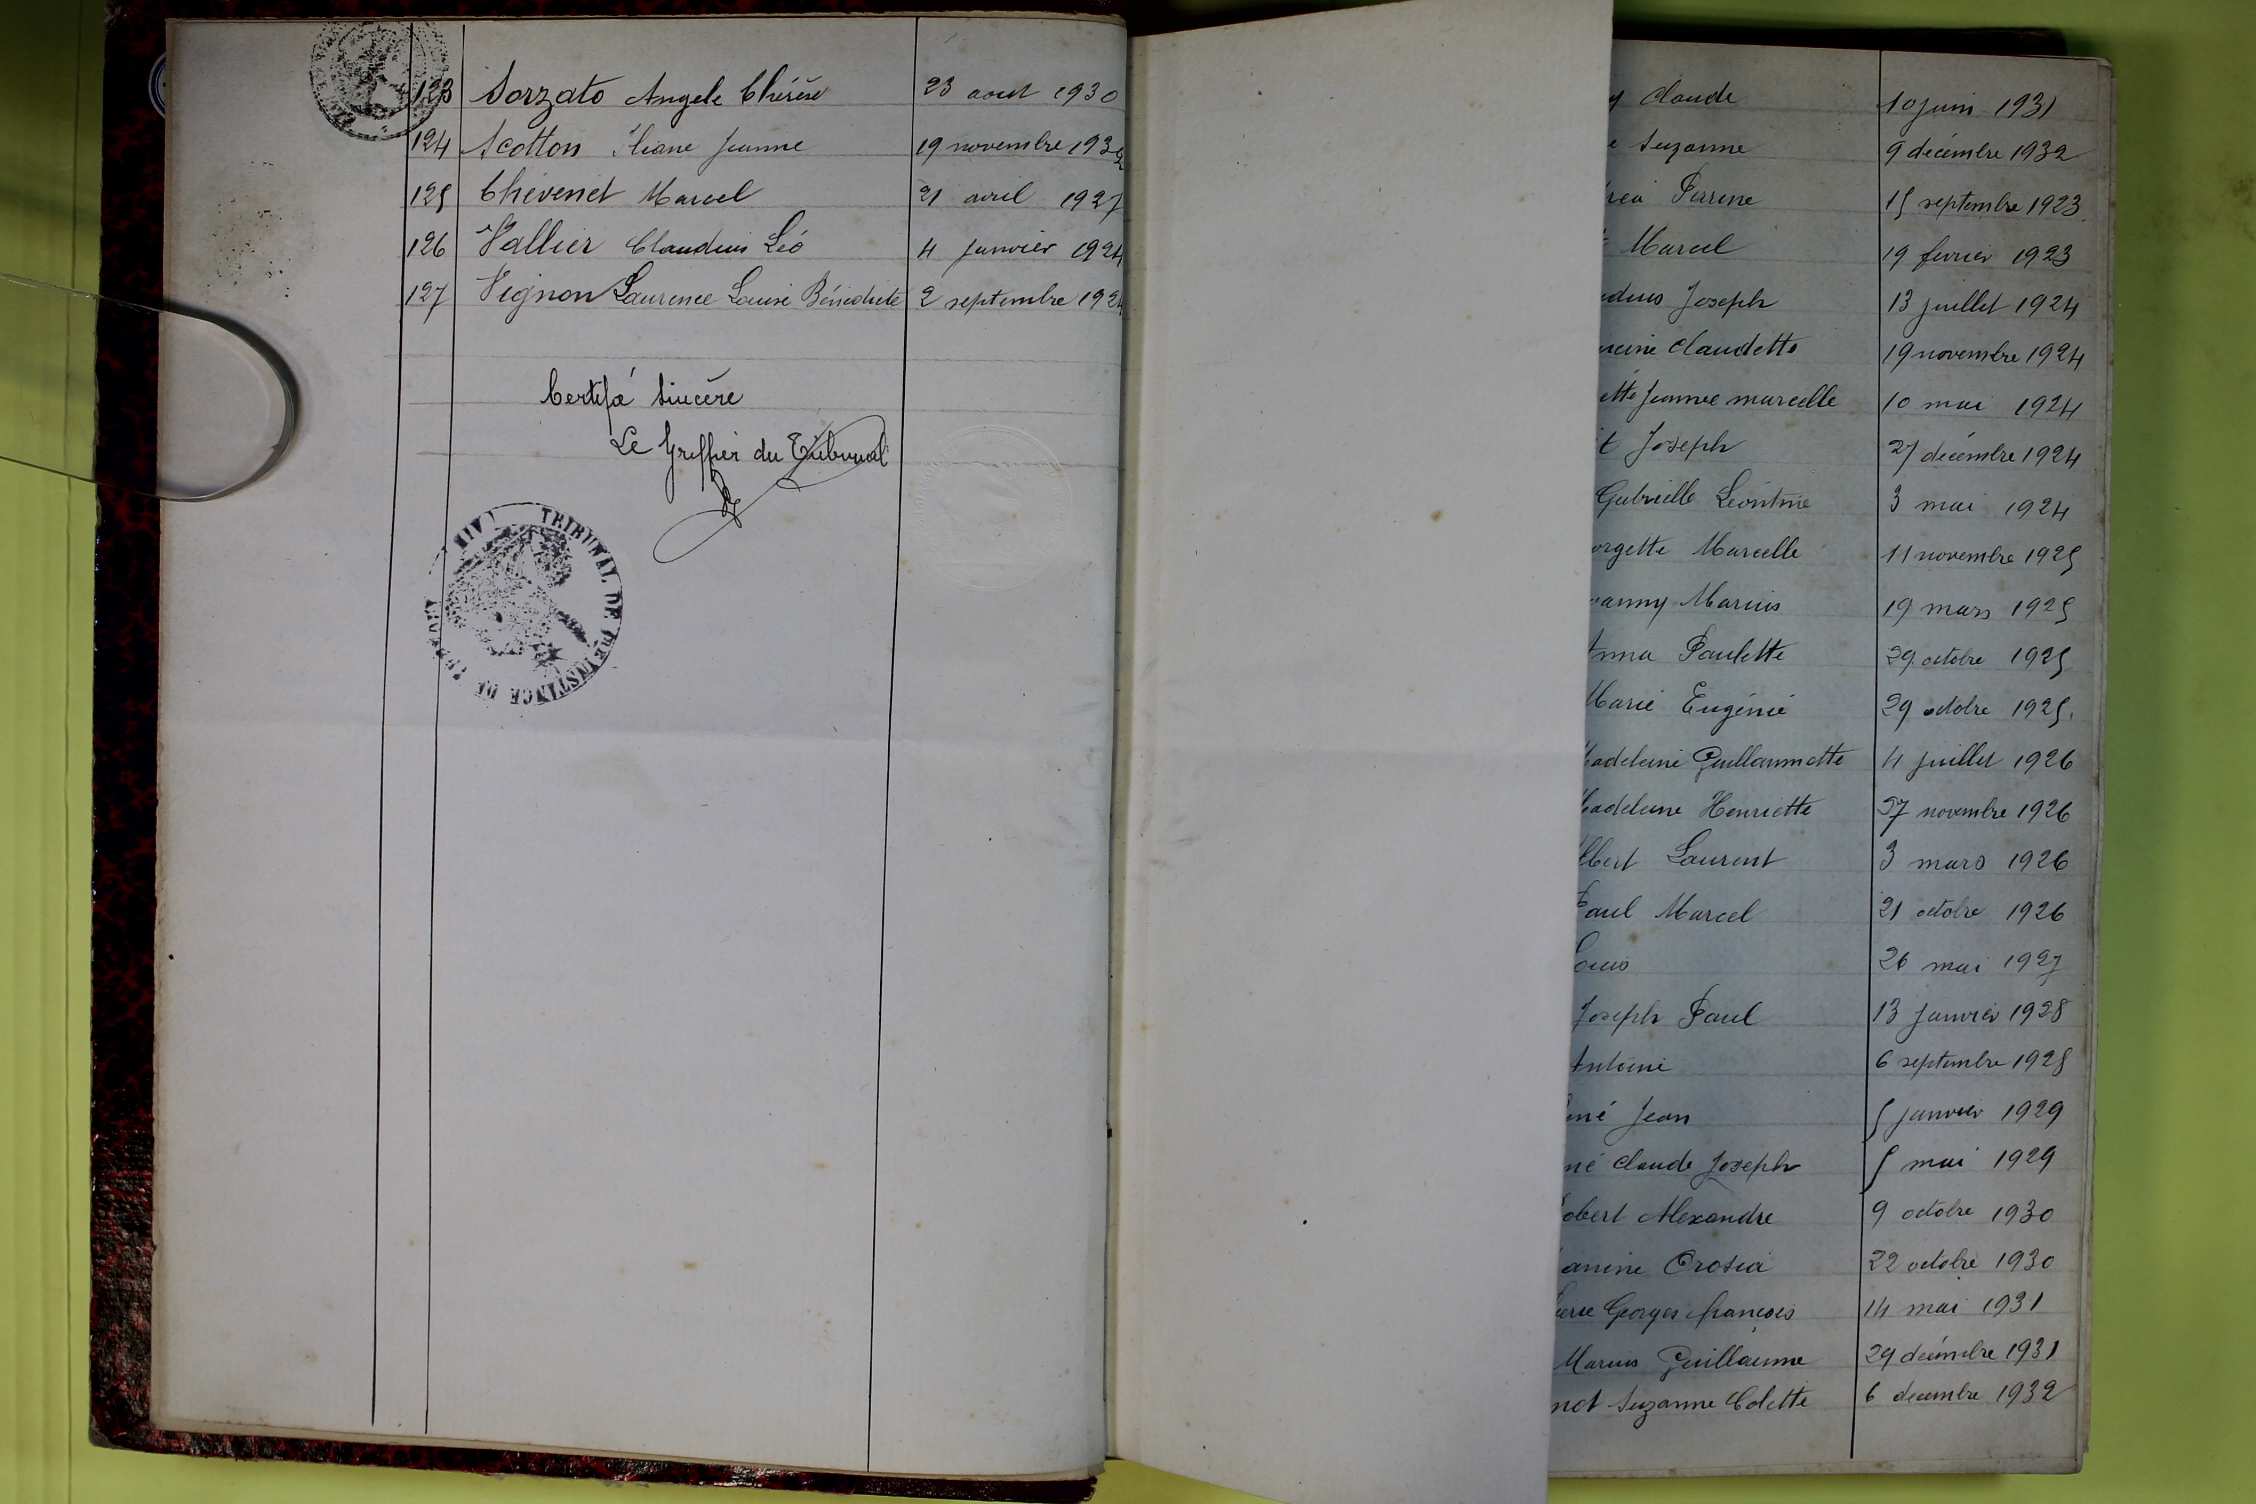 123 Sorzato Angele Thérèse 23 aout 1930
124 Scotton Jeanne 19 novembre 1932
125 Thévenet Marcel 21 avril 1927
126 Vallier Claudius Léo 4 janvier 1924
127 Vignon Laurence Louise Bénédicte 2 septembre 1924
Certifié sincère
Le Greffier du Tribunal
TRIBUNAL DE 1RE INSTANCE DE
Claude 10 juin 1931
Suzanne 9 décembre 1932
Perrine 15 septembre 1923
Marcel 19 fevrier 1923
Joseph 13 juillet 1924
Claudette 19 novembre 1924
Jeanne marcelle 10 mai 1924
Joseph 27 décembre 1924
Gabrielle Léontine 3 mai 1924
orgette Marcelle 11 novembre 1925
anny Marius 19 mars 1925
Anna Paulette 29 octobre 1925
Marie Eugénie 29 octobre 1925
Madeleine Guillaumette 4 juillet 1926
Madeleine Henriette 27 novembre 1926
lbert Laurent 3 mars 1926
Paul Marcel 21 octobre 1926
Louis 26 mai 1927
Joseph Paul 13 janvier 1928
Antoine 6 septembre 1928
né Jean 5 janvier 1929
né Claude Joseph 5 mai 1929
obert Alexandre 9 octobre 1930
anine 22 octobre 1930
Georges françois 14 mai 1931
Marius Guillaume 29 décembre 1931
not Suzanne Colette 6 decembre 1932